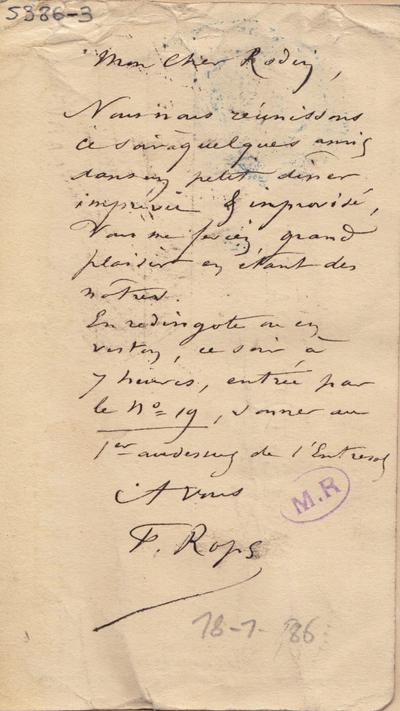 5386-3
Mon cher Rodin,
Nous nous réunissons
ce soir quelques amis
dans un petit dîner
imprévu & improvisé,
Vous me feriez grand
plaisir en étant des
nôtres.
En redingote ou en
veston, ce soir, à
7 heures, entrée par
le Nº 19, sonner au
1er au dessus de l'Entresol
A vous
M.R
F. Rops
18-7-86